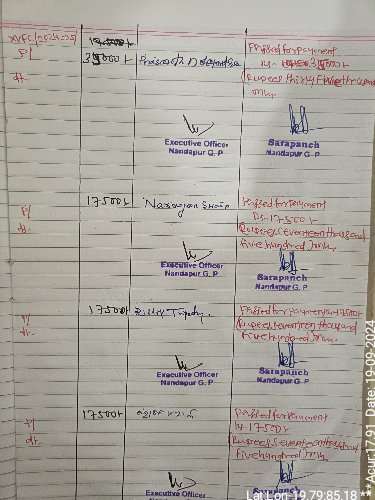 XVFC (2024-25)
P/
dt.
35000/-
Passed for payment
Rs- 35000/-
(Rupees thirty five thousand
only.
Executive Officer
Nandapur G. P
Sarapanch
Nandapur G. P
P/
dt.
17500/-
Passed for payment
Rs-17500/-
(Rupees seventeen thousand
five hundred) only.
Executive Officer
Nandapur G. P
Sarapanch
Nandapur G. P
P/
dt.
17500/-
Passed for payment Rs 17500/-
(Rupees seventeen thousand
five hundred) only.
Executive Officer
Nandapur G. P
Sarapanch
Nandapur G. P
P/
dt.
17500/-
Passed for payment
Rs 17500/-
(Rupees seventeen thousand
five hundred) only.
Executive Officer
Nandapur G. P
Sarapanch
Lat Lon-19.79:85.18 ** Acur:17.91 Date:19-09-2024